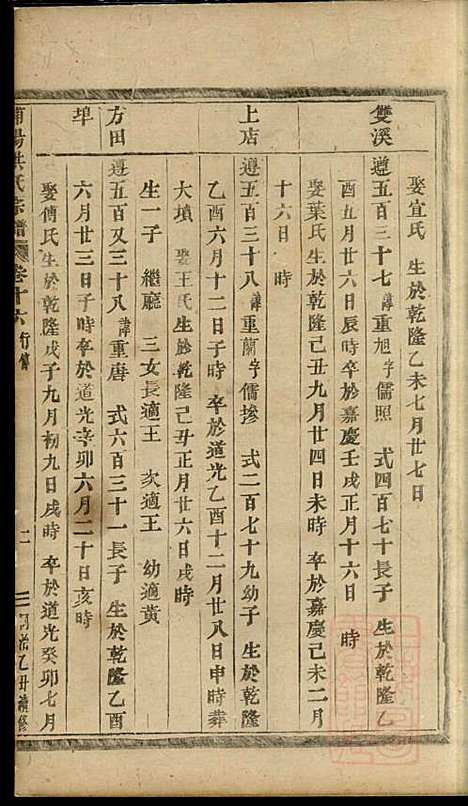 娶宜氏 生於乾隆乙未七月廿七日
雙溪 遵五百三十七諱重旭字儒照 式四百七十長子 生於乾隆乙
酉五月廿六日辰時卒於嘉慶壬戌正月十六日 時
娶葉氏生於乾隆己丑九月廿四日未時 卒於嘉慶己未二月
十六日 時
上店 遵五百三十八諱重蘭字儒摻 式二百七十九幼子 生於乾隆
乙酉六月十二日子時 卒於道光乙酉十二月廿八日申時葬
大墳 娶王氏生於乾隆己丑正月廿六日戌時
生一子 繼廳 三女長適王 次適王 幼適黃
方田 遵五百又三十八諱重唐 式六百三十一長子 生於乾隆乙酉
埠 六月廿三日子時卒於道光辛卯六月二十日亥時
娶傅氏生於乾隆戊子九月初九日戌時 卒於道光癸卯七月
浦陽洪氏宗譜 卷十六 行傳 二 同治乙丑續修